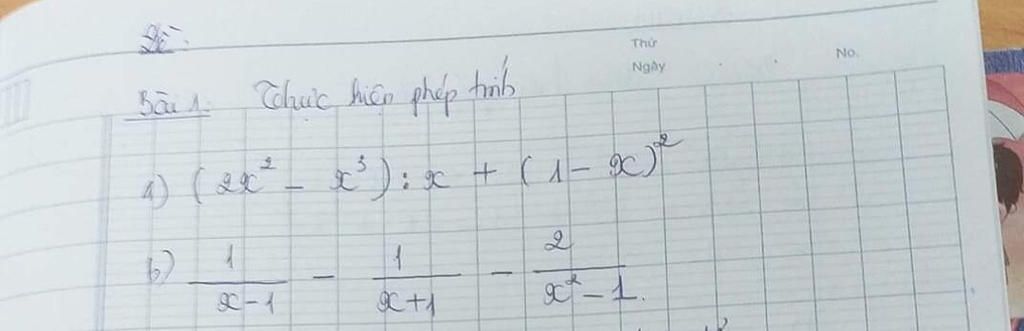 Đề:
Thứ
Ngày
No.
Bài 1: Thực hiện phép tính
a) (2x² - x³) : x + (1 - x)²
b) 1/(x-1) - 1/(x+1) - 2/(x²-1).